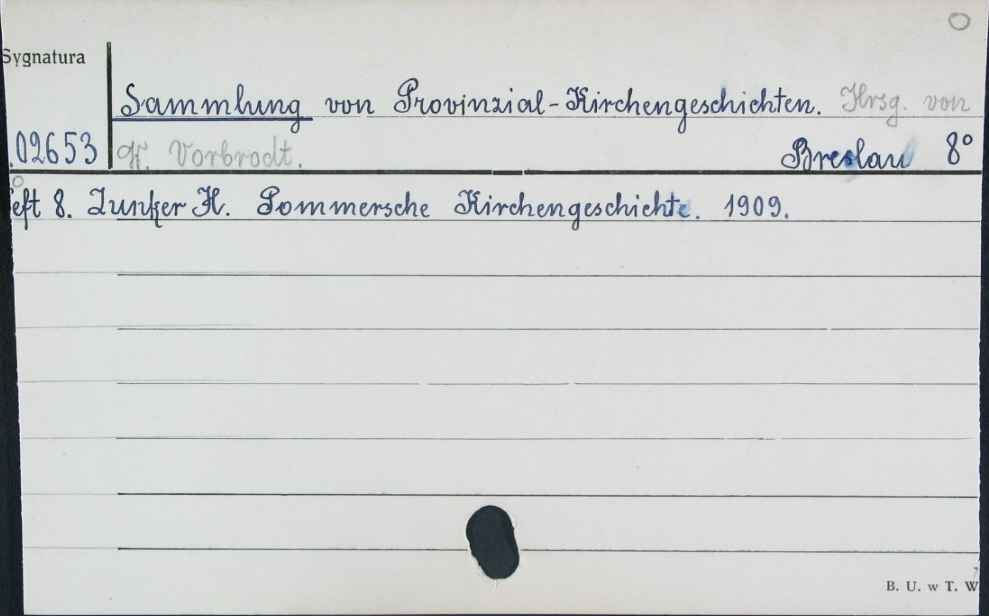 Sygnatura
Sammlung von Provinzial-Kirchengeschichten. Hrsg. von
02653 K. Vorbrodt. Breslau 8°
eft 8. Junker H. Pommersche Kirchengeschichte. 1909.
B. U. w T. W